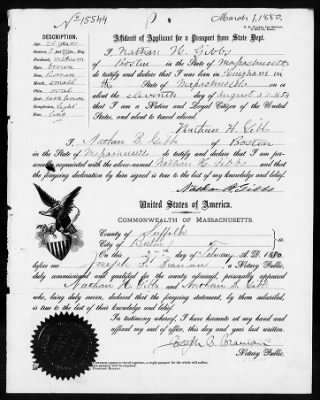 No 15544
March 1, 1880.
DESCRIPTION.
Affidavit of Applicant for a Passport from State Dept.
I, Nathan H. Gibbs
of Boston in the State of Massachusetts
do testify and declare that I was born in
the State of Massachusetts on
the eleventh day of August A.D. 18
that I am a Native and Loyal Citizen of the United
States, and about to travel abroad.
medium
brown
Roman
small
oval
light
Nathan H. Gibbs
I, Nathan B. Gibbs of Boston
in the State of Massachusetts do testify and declare that I am per-
sonally acquainted with the above-named Nathan H. Gibbs and that
the foregoing declaration by him signed is true to the best of my knowledge and belief.
Nathan B. Gibbs
United States of America.
COMMONWEALTH OF MASSACHUSETTS.
County of Suffolk
City of Boston } ss.
On this day of February A.D. 1880
before me Joseph B. Braman, a Notary Public,
duly commissioned and qualified for the county aforesaid, personally appeared
Nathan H. Gibbs and Nathan B. Gibbs
who, being duly sworn, declared that the foregoing statement, by them subscribed,
is true to the best of their knowledge and belief.
In testimony whereof, I have hereunto set my hand and
affixed my seal of office, this day and year last written.
Joseph B. Braman
Notary Public.